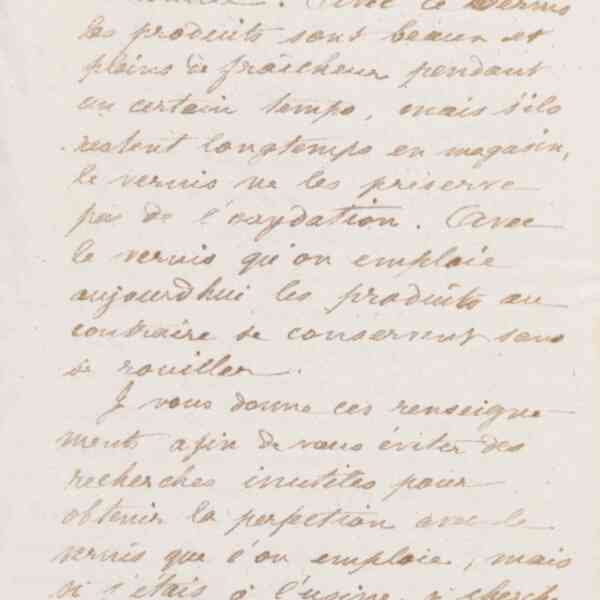 . Avec ce vernis
les produits sont beaux et
pleins de fraicheur pendant
un certain temps, mais s'ils
restent longtemps en magasin,
le vernis ne les préserve
pas de l'oxydation. Avec
le vernis qu'on emploie
aujourdhui les produits au
contraire se conservent sans
se rouiller.
Je vous donne ces renseigne-
ments afin de vous éviter des
recherches inutiles pour
obtenir la perfection avec le
vernis que l'on emploie, mais
si j'étais à l'usine, je